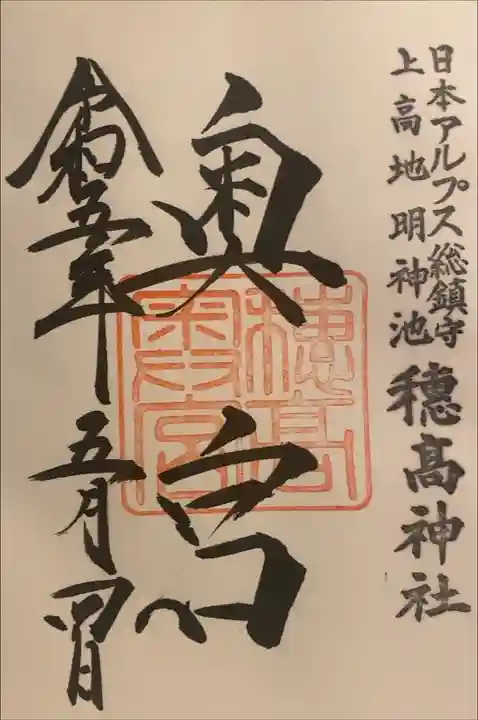 日本アルプス総鎮守
上高地明神池
穂高神社
奥宮
令和五年五月四日
穂高
奥宮